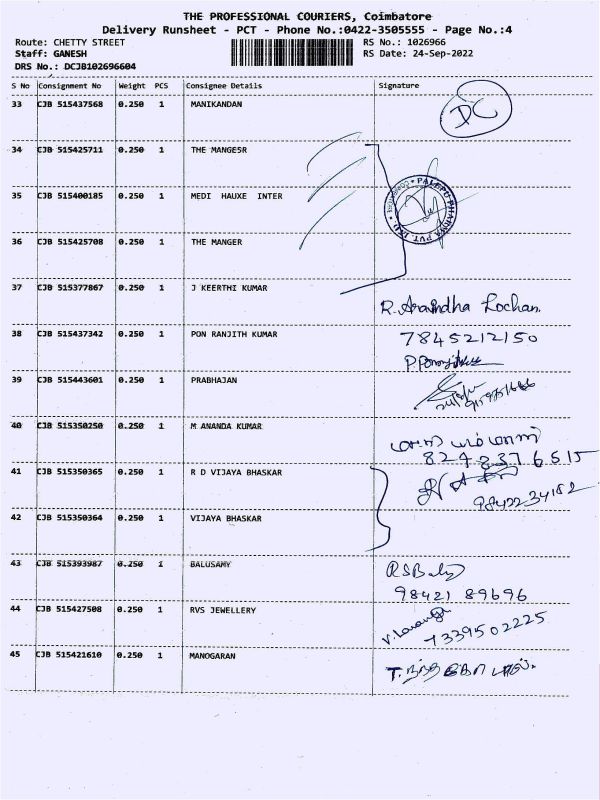 THE PROFESSIONAL COURIERS, Coimbatore
Delivery Runsheet - PCT - Phone No.:0422-3505555 - Page No.:4
Route: CHETTY STREET RS No.: 1026966
Staff: GANESH RS Date: 24-Sep-2022
DRS No.: DCJB102696604
S No Consignment No Weight PCS Consignee Details Signature
33 CJB 515437568 0.250 1 MANIKANDAN DC
34 CJB 515425711 0.250 1 THE MANGESR
PALEPU PHARMA PVT. LTD COIMBATORE
35 CJB 515400185 0.250 1 MEDI HAUXE INTER
36 CJB 515425708 0.250 1 THE MANGER
37 CJB 515377867 0.250 1 J KEERTHI KUMAR
R. Aravindha Lochan.
38 CJB 515437342 0.250 1 PON RANJITH KUMAR 7845212150
39 CJB 515443601 0.250 1 PRABHAJAN
40 CJB 515350250 0.250 1 M ANANDA KUMAR
8248376515
41 CJB 515350365 0.250 1 R D VIJAYA BHASKAR
9842234182
42 CJB 515350364 0.250 1 VIJAYA BHASKAR
43 CJB 515393987 0.250 1 BALUSAMY RSBaly
98421 89696
44 CJB 515427508 0.250 1 RVS JEWELLERY
7339502225
45 CJB 515421610 0.250 1 MANOGARAN